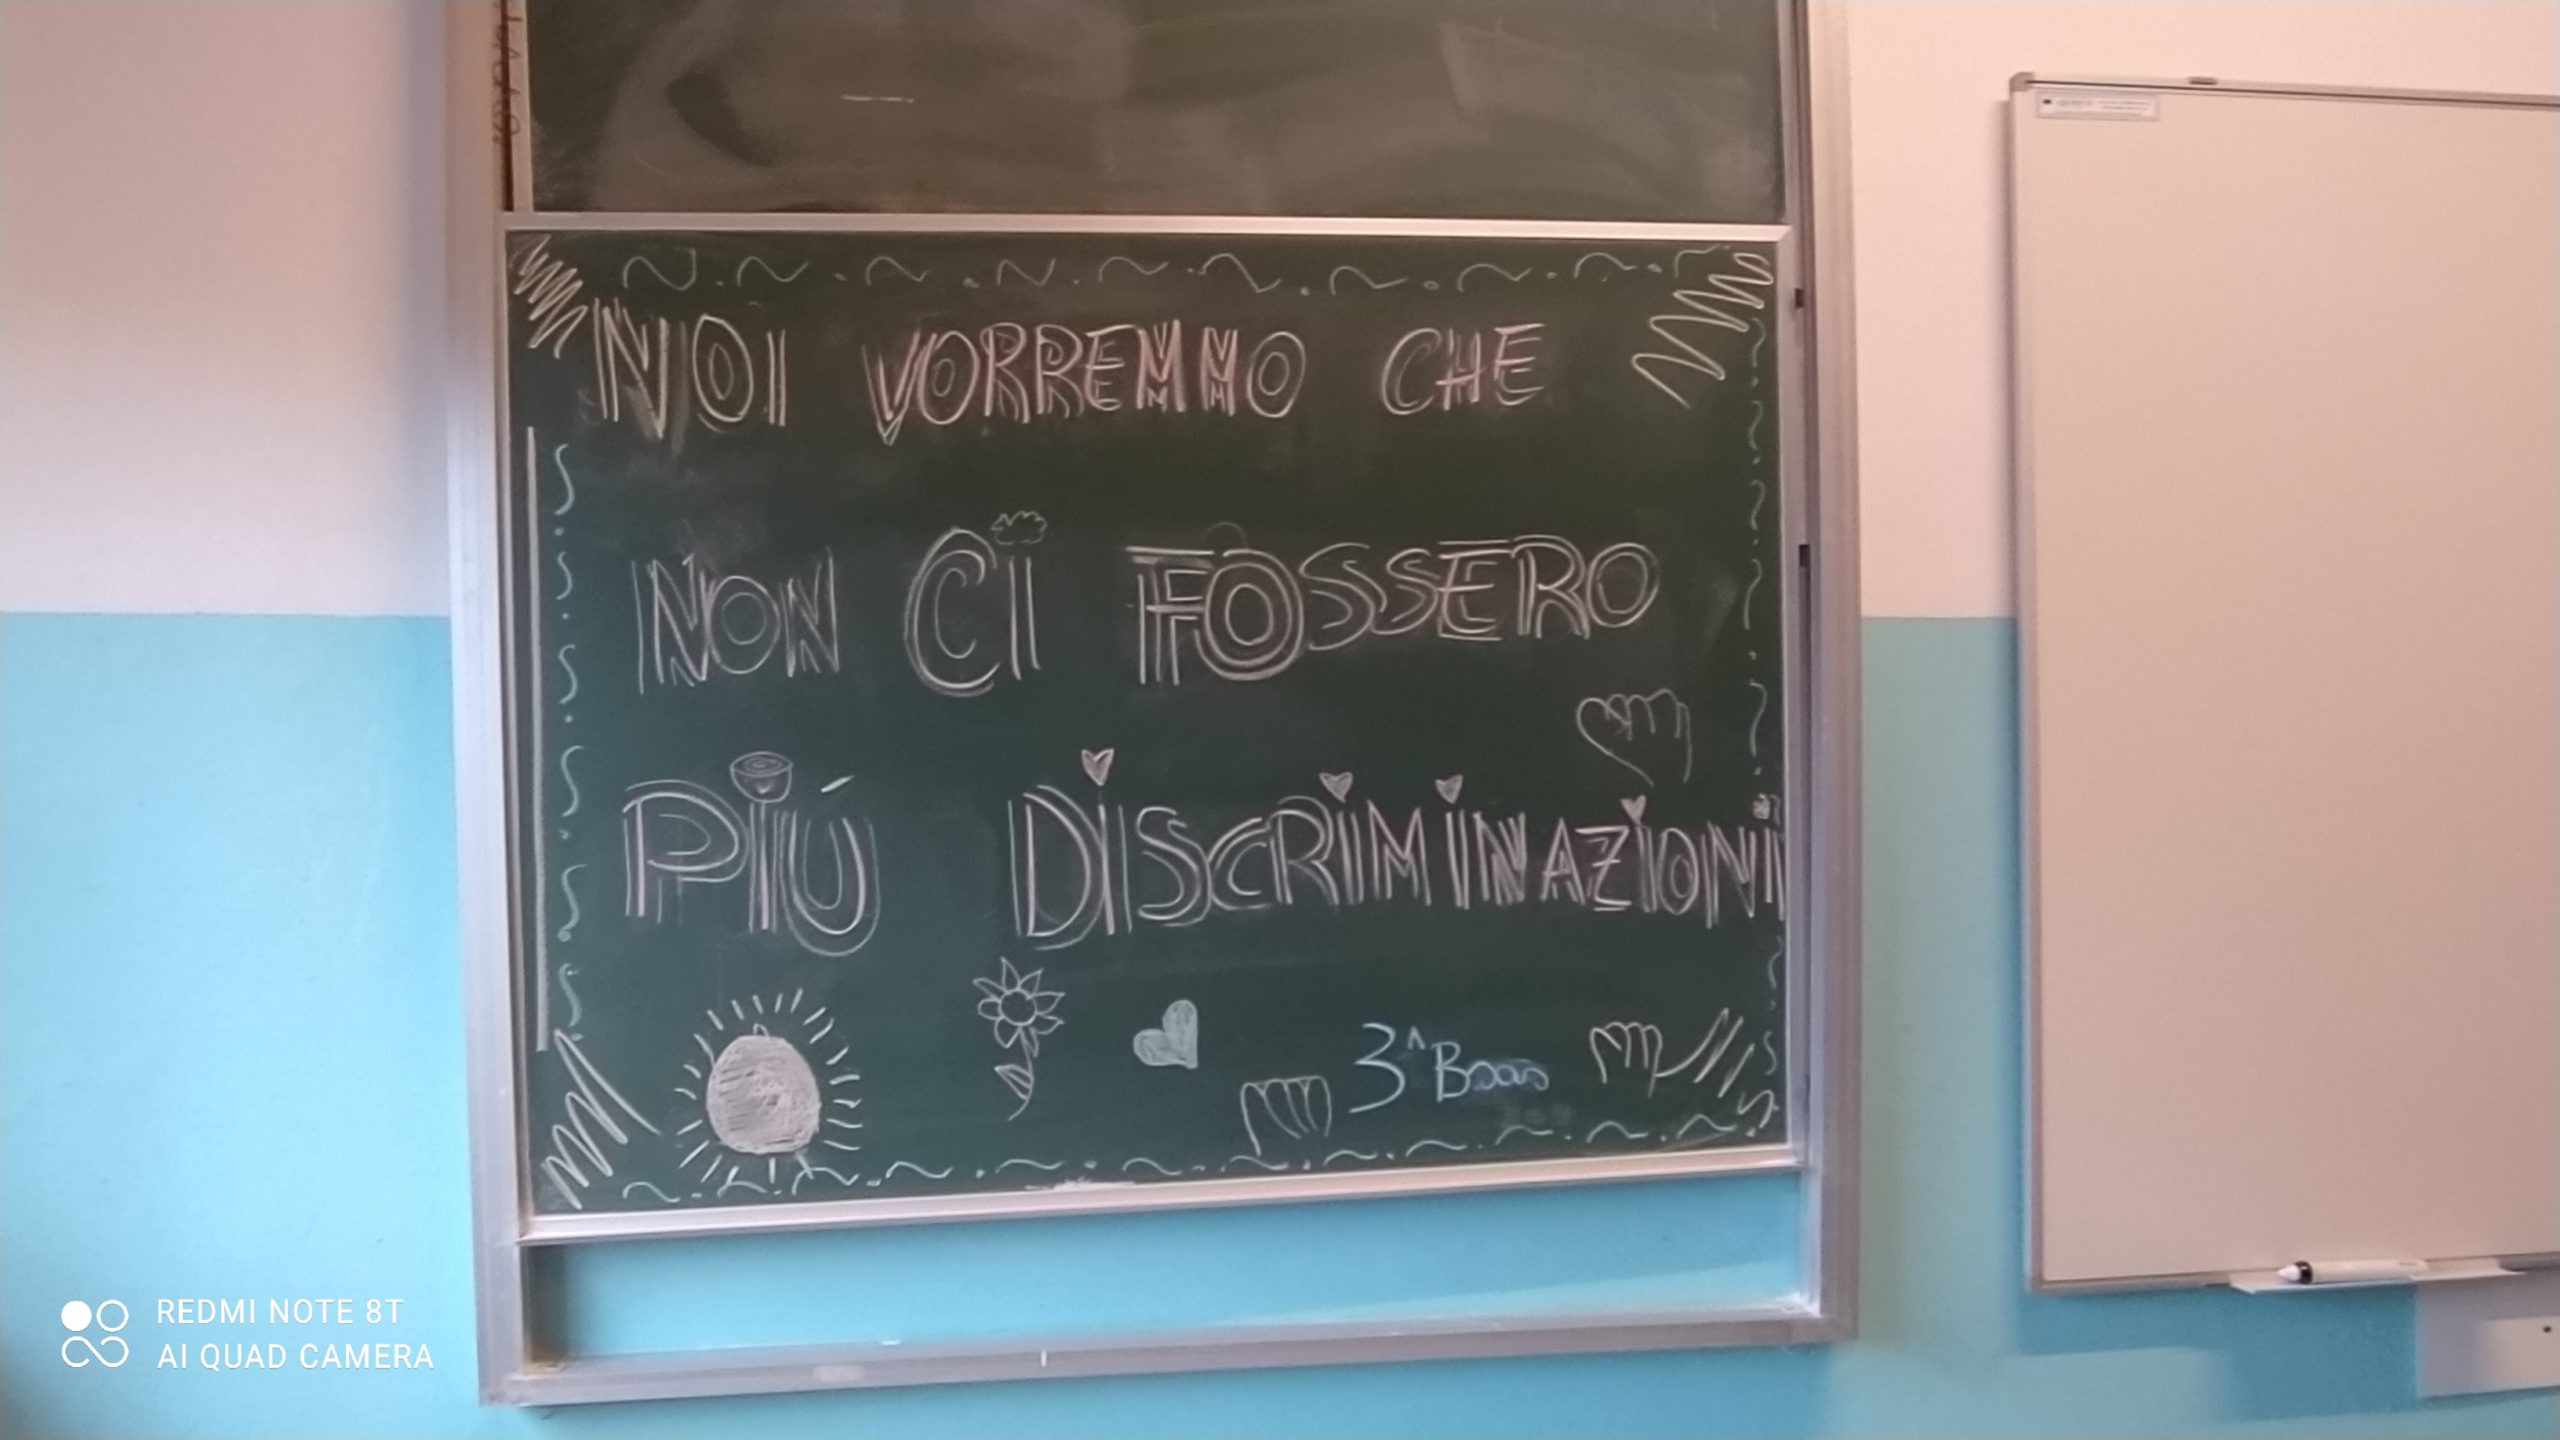 NOI VORREMMO CHE
NON CI FOSSERO
PIÚ DISCRIMINAZIONI
3^B
REDMI NOTE 8T
AI QUAD CAMERA